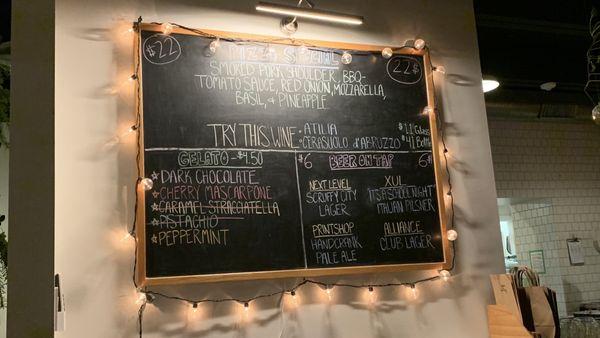 $22 PIZZA SPECIAL 22$
SMOKED PORK SHOULDER, BBQ-
TOMATO SAUCE, RED ONION, MOZZARELLA,
BASIL, & PINEAPPLE
TRY THIS WINE • ATILIA $11 Glass
• CERASUOLO d'ABRUZZO $41 Bottle
GELATO - $4.50
☆ DARK CHOCOLATE
☆ CHERRY MASCARPONE
☆ CARAMEL STRACCIATELLA
☆ PISTACHIO
☆ PEPPERMINT
$6 BEER ON TAP 6$
NEXT LEVEL
SCRUFFY CITY
LAGER
XUL
ITALIAN PILSNER
PRINTSHOP
HANDCRANK
PALE ALE
ALLIANCE
CLUB LAGER